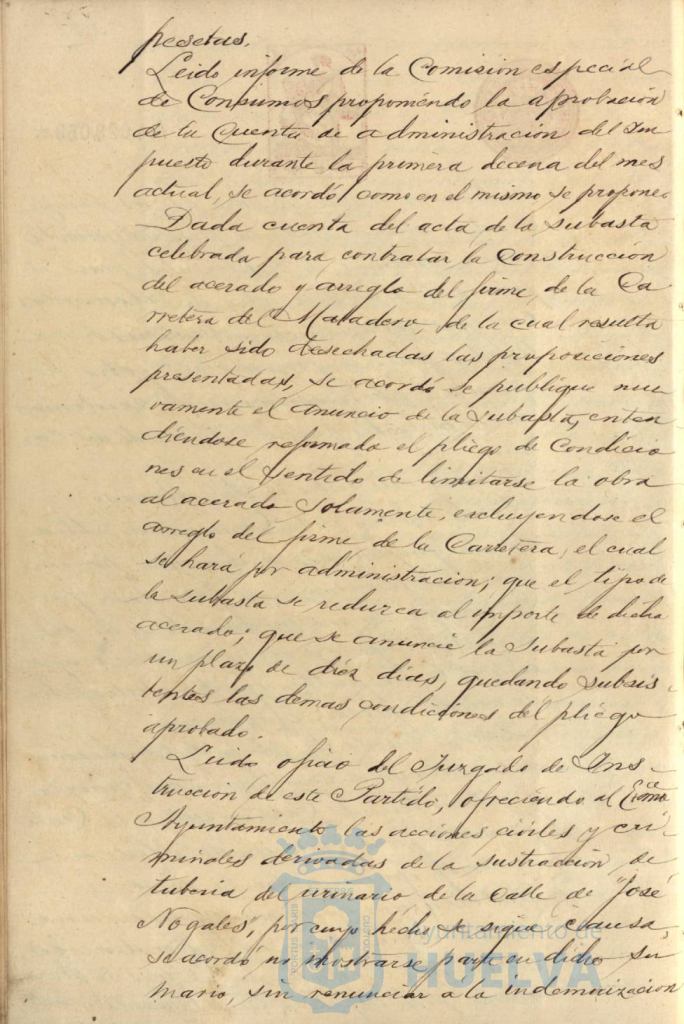 pesetas.
Leido informe de la Comisión especial
de Consumos proponiendo la aprobación
de la Cuenta de administración del Im-
puesto durante la primera decena del mes
actual, se acordó como en el mismo se propone.
Dada cuenta del acta de la subasta
celebrada para contratar la construcción
del acerado y arreglo del firme de la Ca-
rretera del Matadero, de la cual resulta
haber sido desechadas las proposiciones
presentadas, se acordó se publique nue-
vamente el anuncio de la subasta, enten-
diéndose reformado el pliego de condicio-
nes en el sentido de limitarse la obra
al acerado solamente, excluyendose el
arreglo del firme de la Carretera, el cual
se hará por administración; que el tipo de
la subasta se reduzca al importe de dicho
acerado; que se anuncie la Subasta por
un plazo de diez dias, quedando subsis-
tentes las demas condiciones del pliego
aprobado.
Leido oficio del Juzgado de Ins-
trucción de este Partido, ofreciendo al Excmo
Ayuntamiento las acciones civiles y cri-
minales derivadas de la sustracción de
tuberia del urinario de la Calle de "José
Nogales", por cuyo hecho se sigue causa,
se acordó no mostrarse parte en dicho su-
mario, sin renunciar a la indemnización
Ayuntamiento de
HUELVA